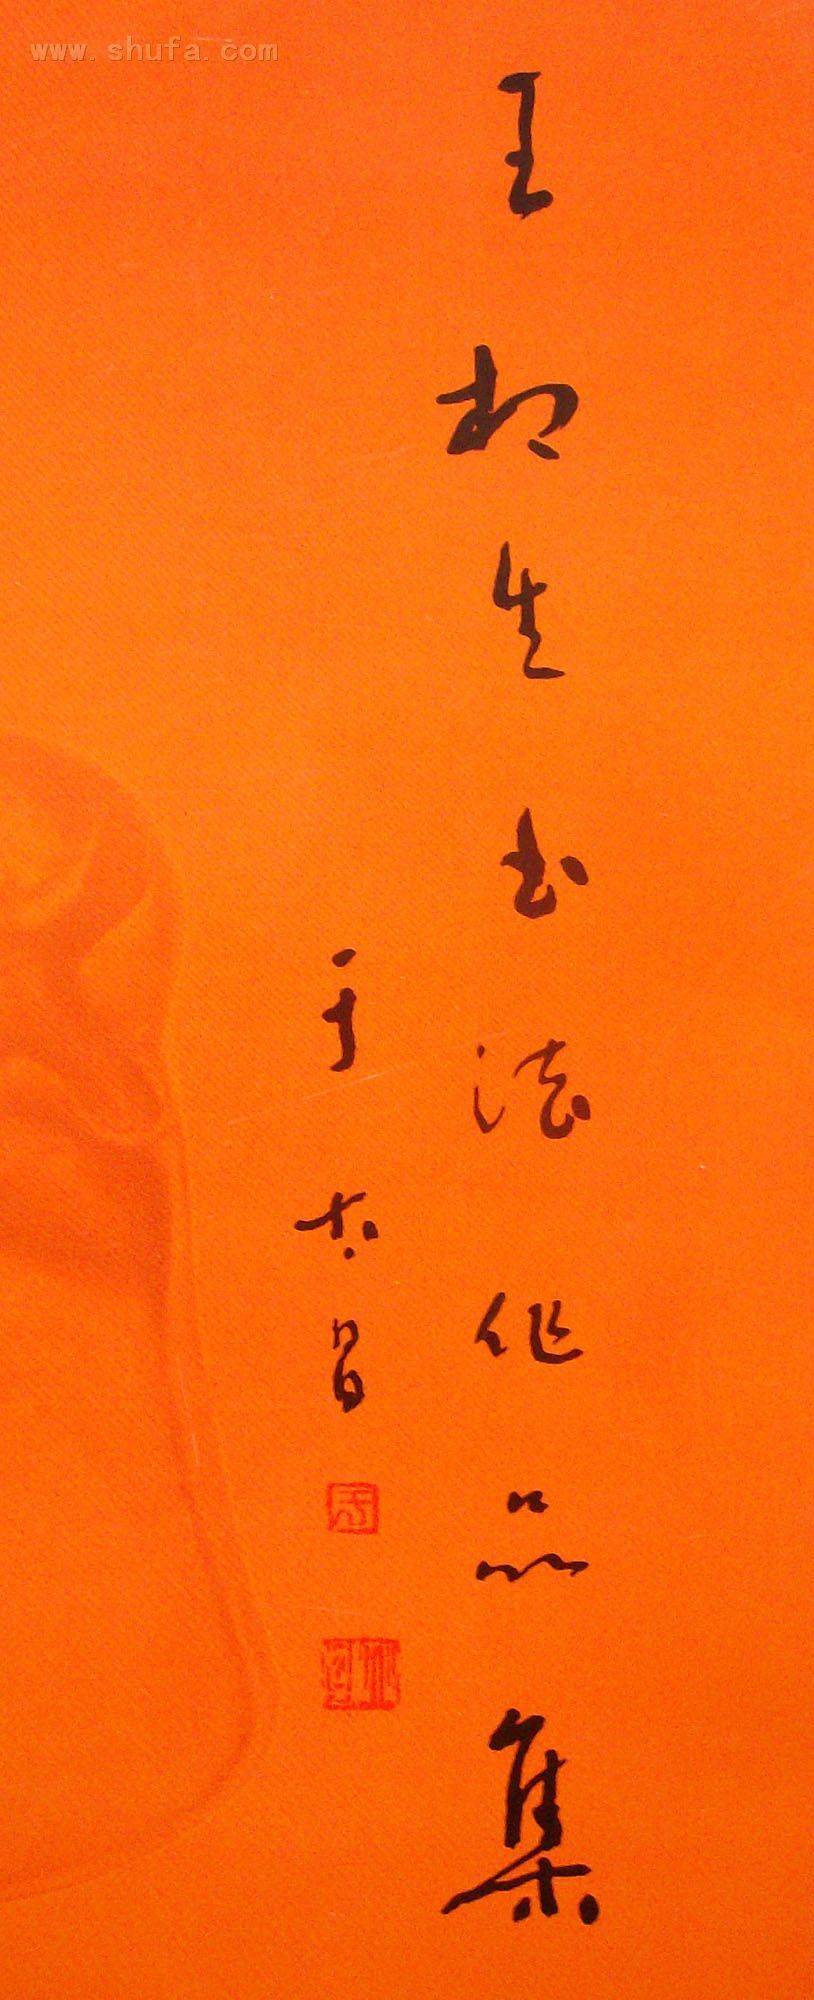 www.shufa.com
王相生书法作品集
于太昌